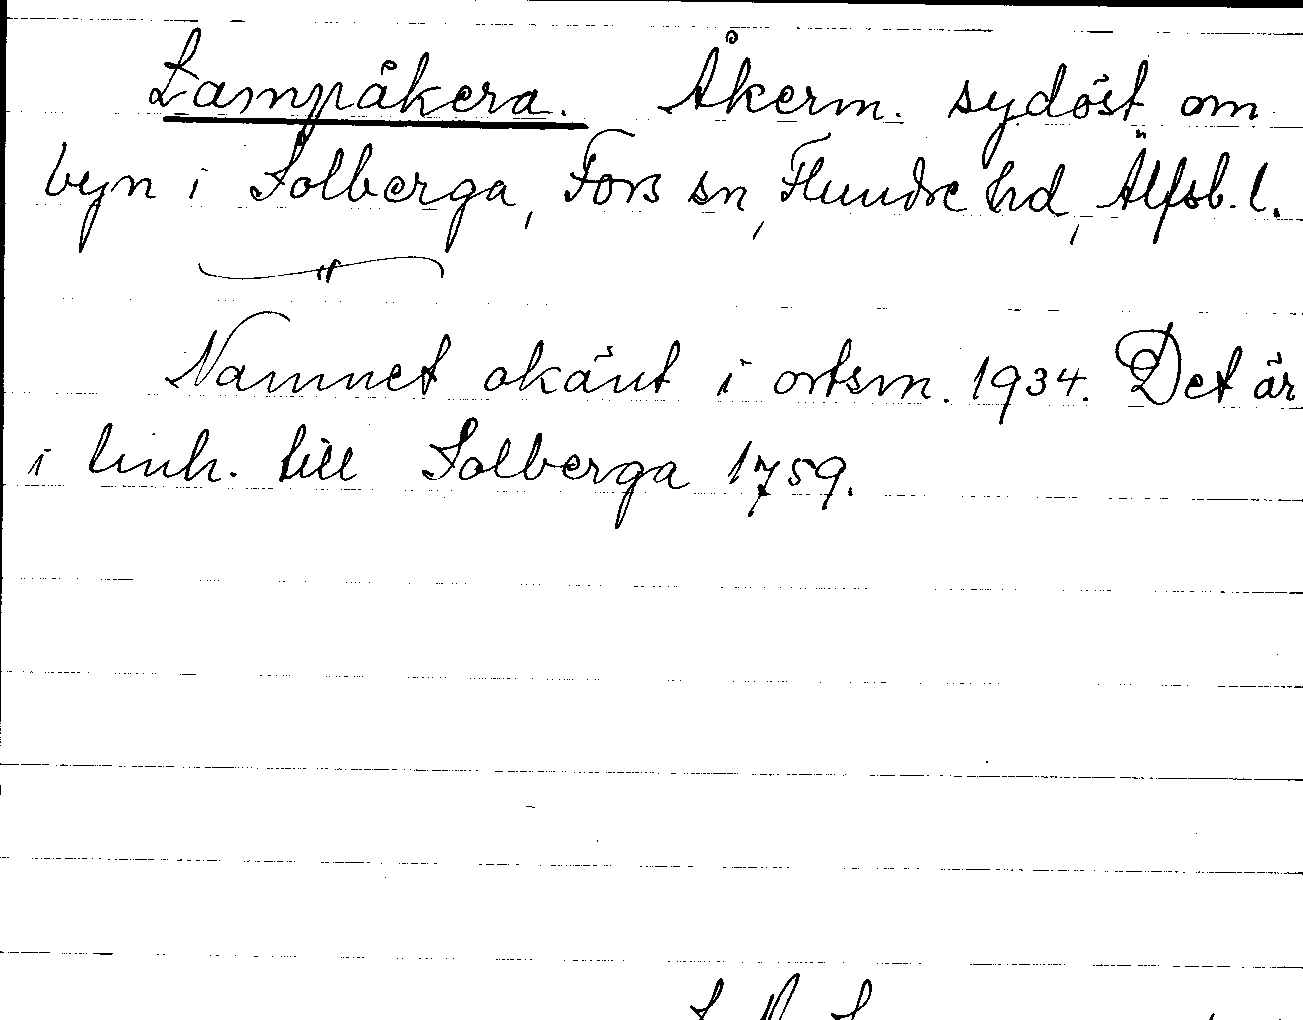 Lampåkera. Åkerm. sydöst om
byn i Solberga, Fors sn, Flundre hd, Älfsb. l.
Namnet okänt i ortsm. 1934. Det är
i link. till Solberga 1759.